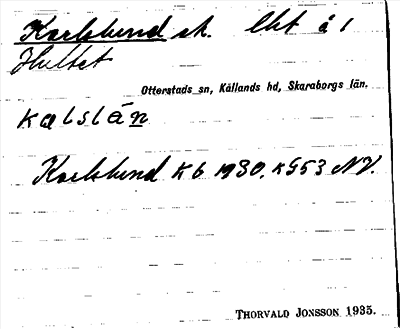 Karlslund st. lht å 1
Hultet
Otterstads sn, Kållands hd, Skaraborgs län.
kalslán
Karlslund Kb 1930. KG53 NV.
THORVALD JONSSON 1935.